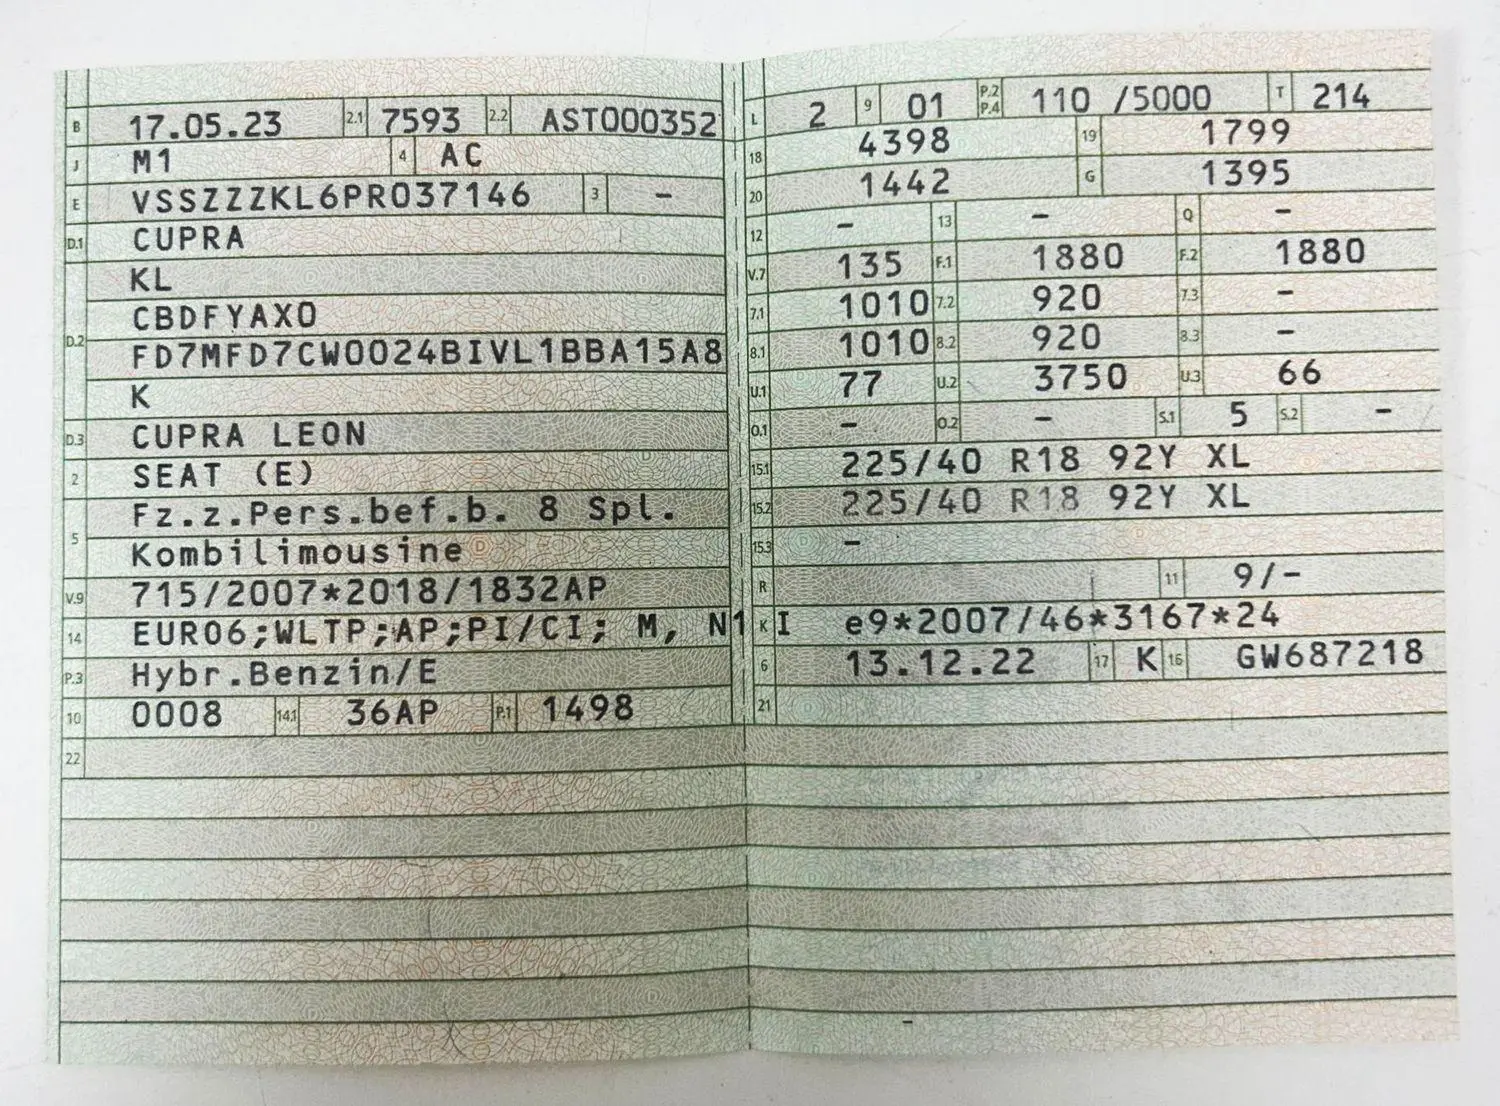 B 17.05.23 2.1 7593 2.2 AST000352
J M1 4 AC
E VSSZZZKL6PR037146 3 –
D.1 CUPRA
KL
CBDFYAX0
D.2 FD7MFD7CW0024BIVL1BBA15A8
K
D.3 CUPRA LEON
2 SEAT (E)
Fz.z.Pers.bef.b. 8 Spl.
5 Kombilimousine
V.9 715/2007*2018/1832AP
14 EURO6;WLTP;AP;PI/CI; M, N1 I
P.3 Hybr.Benzin/E
10 0008 14.1 36AP P.1 1498
22
L 2 9 01 P.2 P.4 110 /5000 T 214
18 4398 19 1799
20 1442 G 1395
12 – 13 – Q –
V.7 135 F.1 1880 F.2 1880
7.1 1010 7.2 920 7.3 –
8.1 1010 8.2 920 8.3 –
U.1 77 U.2 3750 U.3 66
O.1 – O.2 – S.1 5 S.2 –
15.1 225/40 R18 92Y XL
15.2 225/40 R18 92Y XL
15.3 –
R 11 9/–
K e9*2007/46*3167*24
6 13.12.22 17 K 16 GW687218
21
–